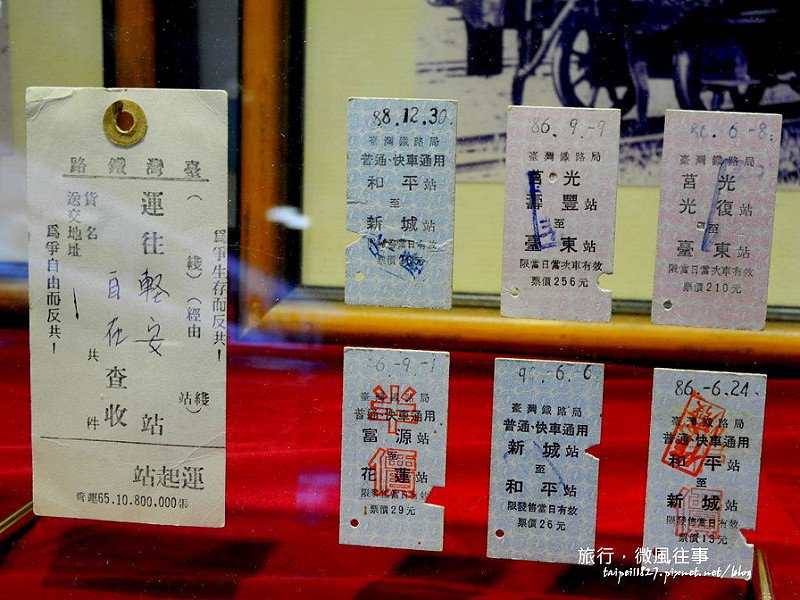 臺灣鐵路
（ 綫）（經由 綫 站）
運往輕安站
貨名 自在 共 件
查收
送交地址
為爭生存而反共！
為爭自由而反共！
運起站
管運65.10.800,000張
88.12.30
臺灣鐵路局
普通·快車通用
和平站
至
新城站
86.-9.-9
臺灣鐵路局
莒光
壽豐站
至
臺東站
限當日當次車有效
票價256元
臺灣鐵路局
莒光
光復站
至
臺東站
限當日當次車有效
票價210元
臺灣鐵路局
普通·快車通用
富源站
至
花蓮站
半價
票價29元
臺灣鐵路局
普通·快車通用
新城站
至
和平站
限發售當日有效
票價26元
86.-6.24
臺灣鐵路局
普通·快車通用
和平站
至
新城站
限發售當日有效
票價13元
旅行，微風往事
taipei11827.pixnet.net/blog